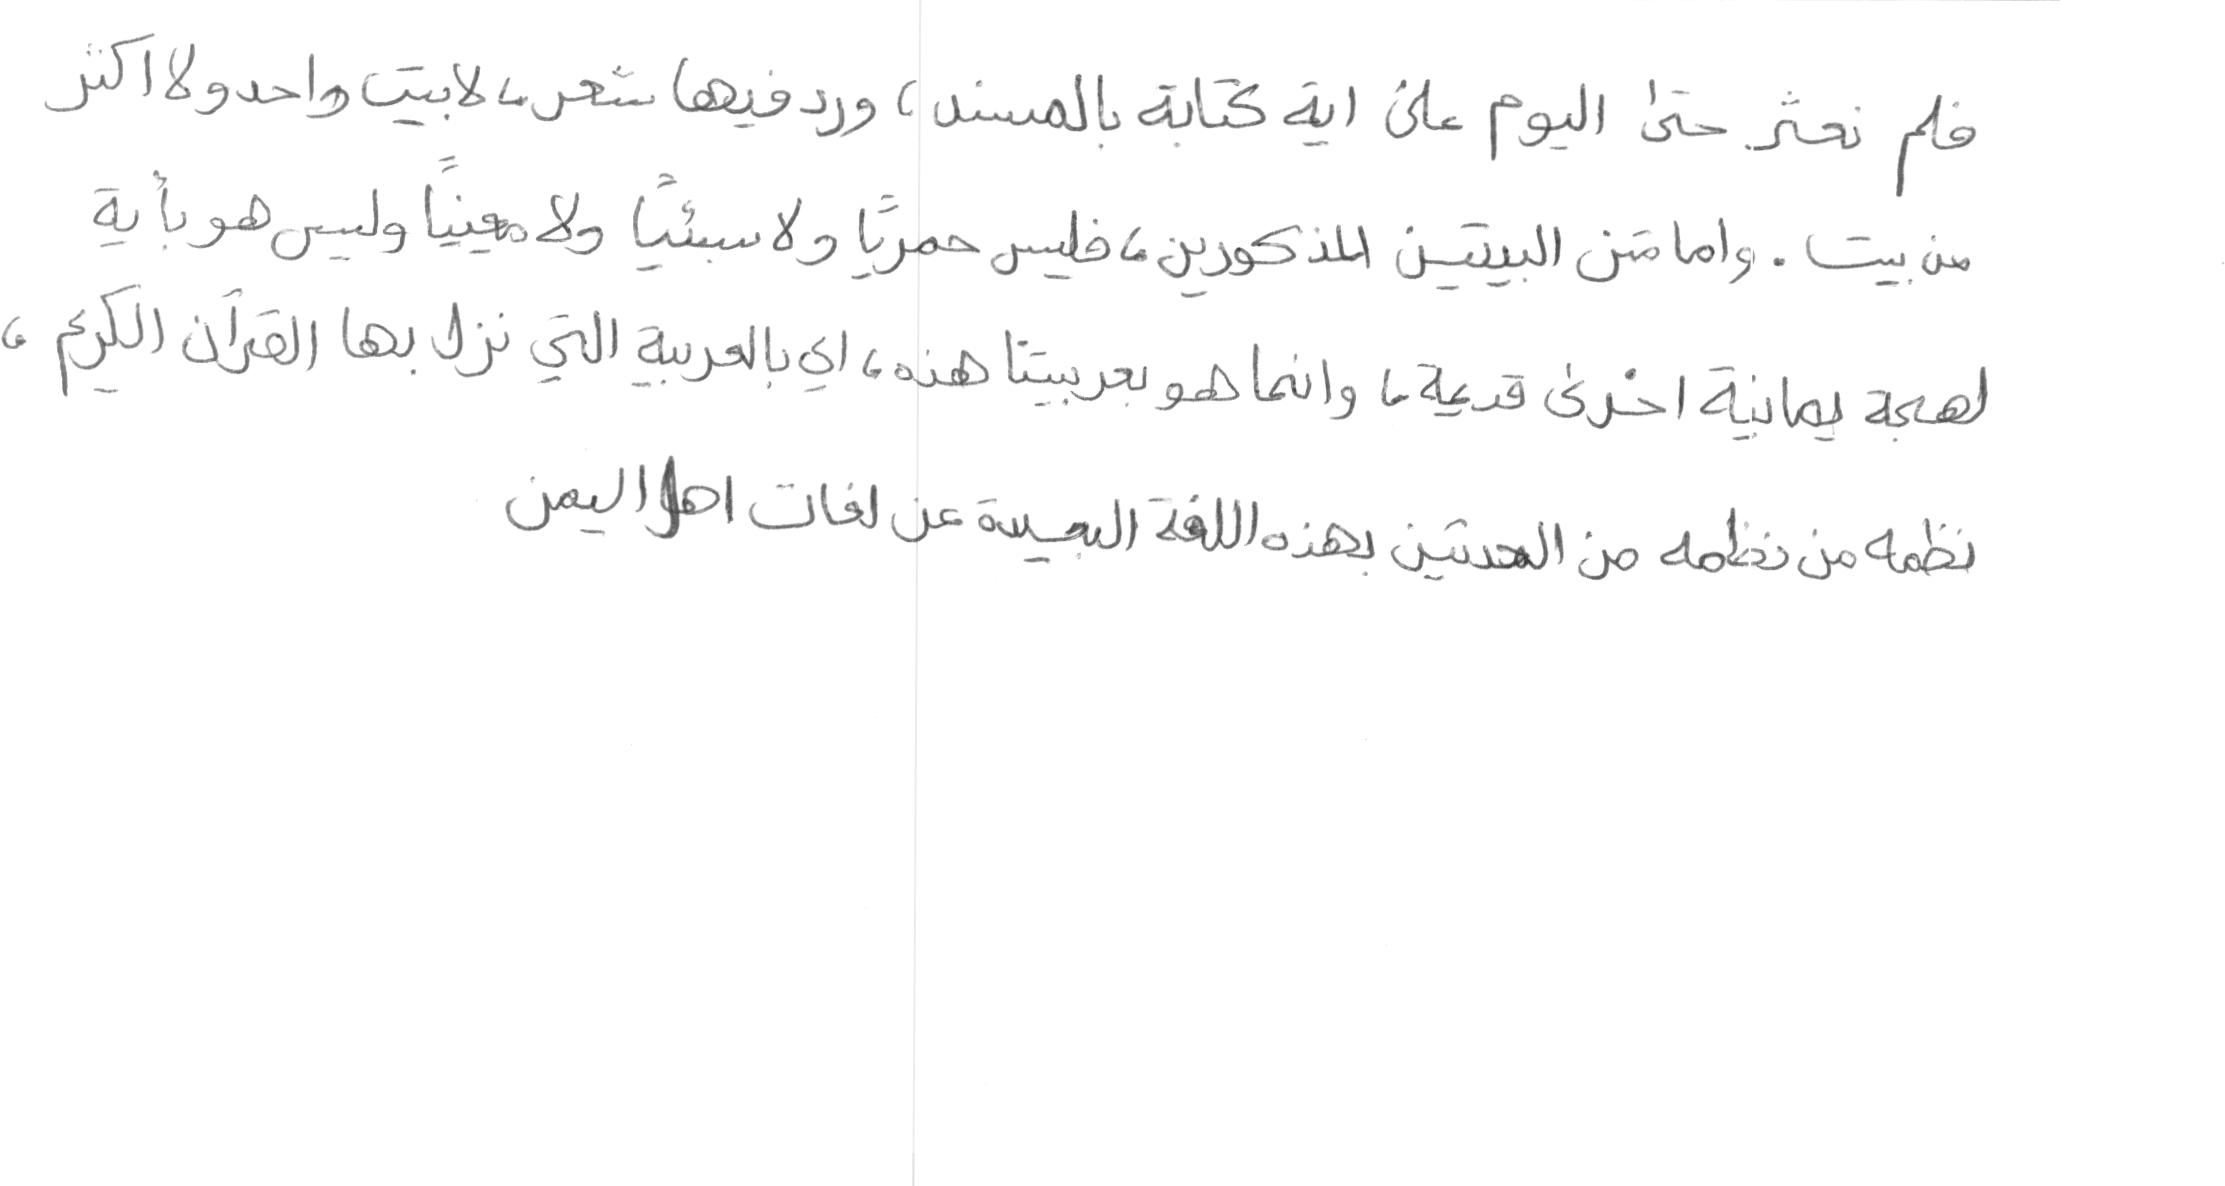 فلم نعثر حتى اليوم على اية كتابة بالمسند، ورد فيها شعر، لا بيت واحد ولا اكثر
من بيت. واما متن البيتين المذكورين، فليس حمريًا ولا سبئيًا ولا معينيًا وليس هو بأية
لهجة يمانية اخرى قديمة، وانما هو بعربيتنا هذه، اي بالعربية التي نزل بها القرآن الكريم،
نظمه من نظمه من المحدثين بهذه اللغة البعيدة عن لغات اهل اليمن